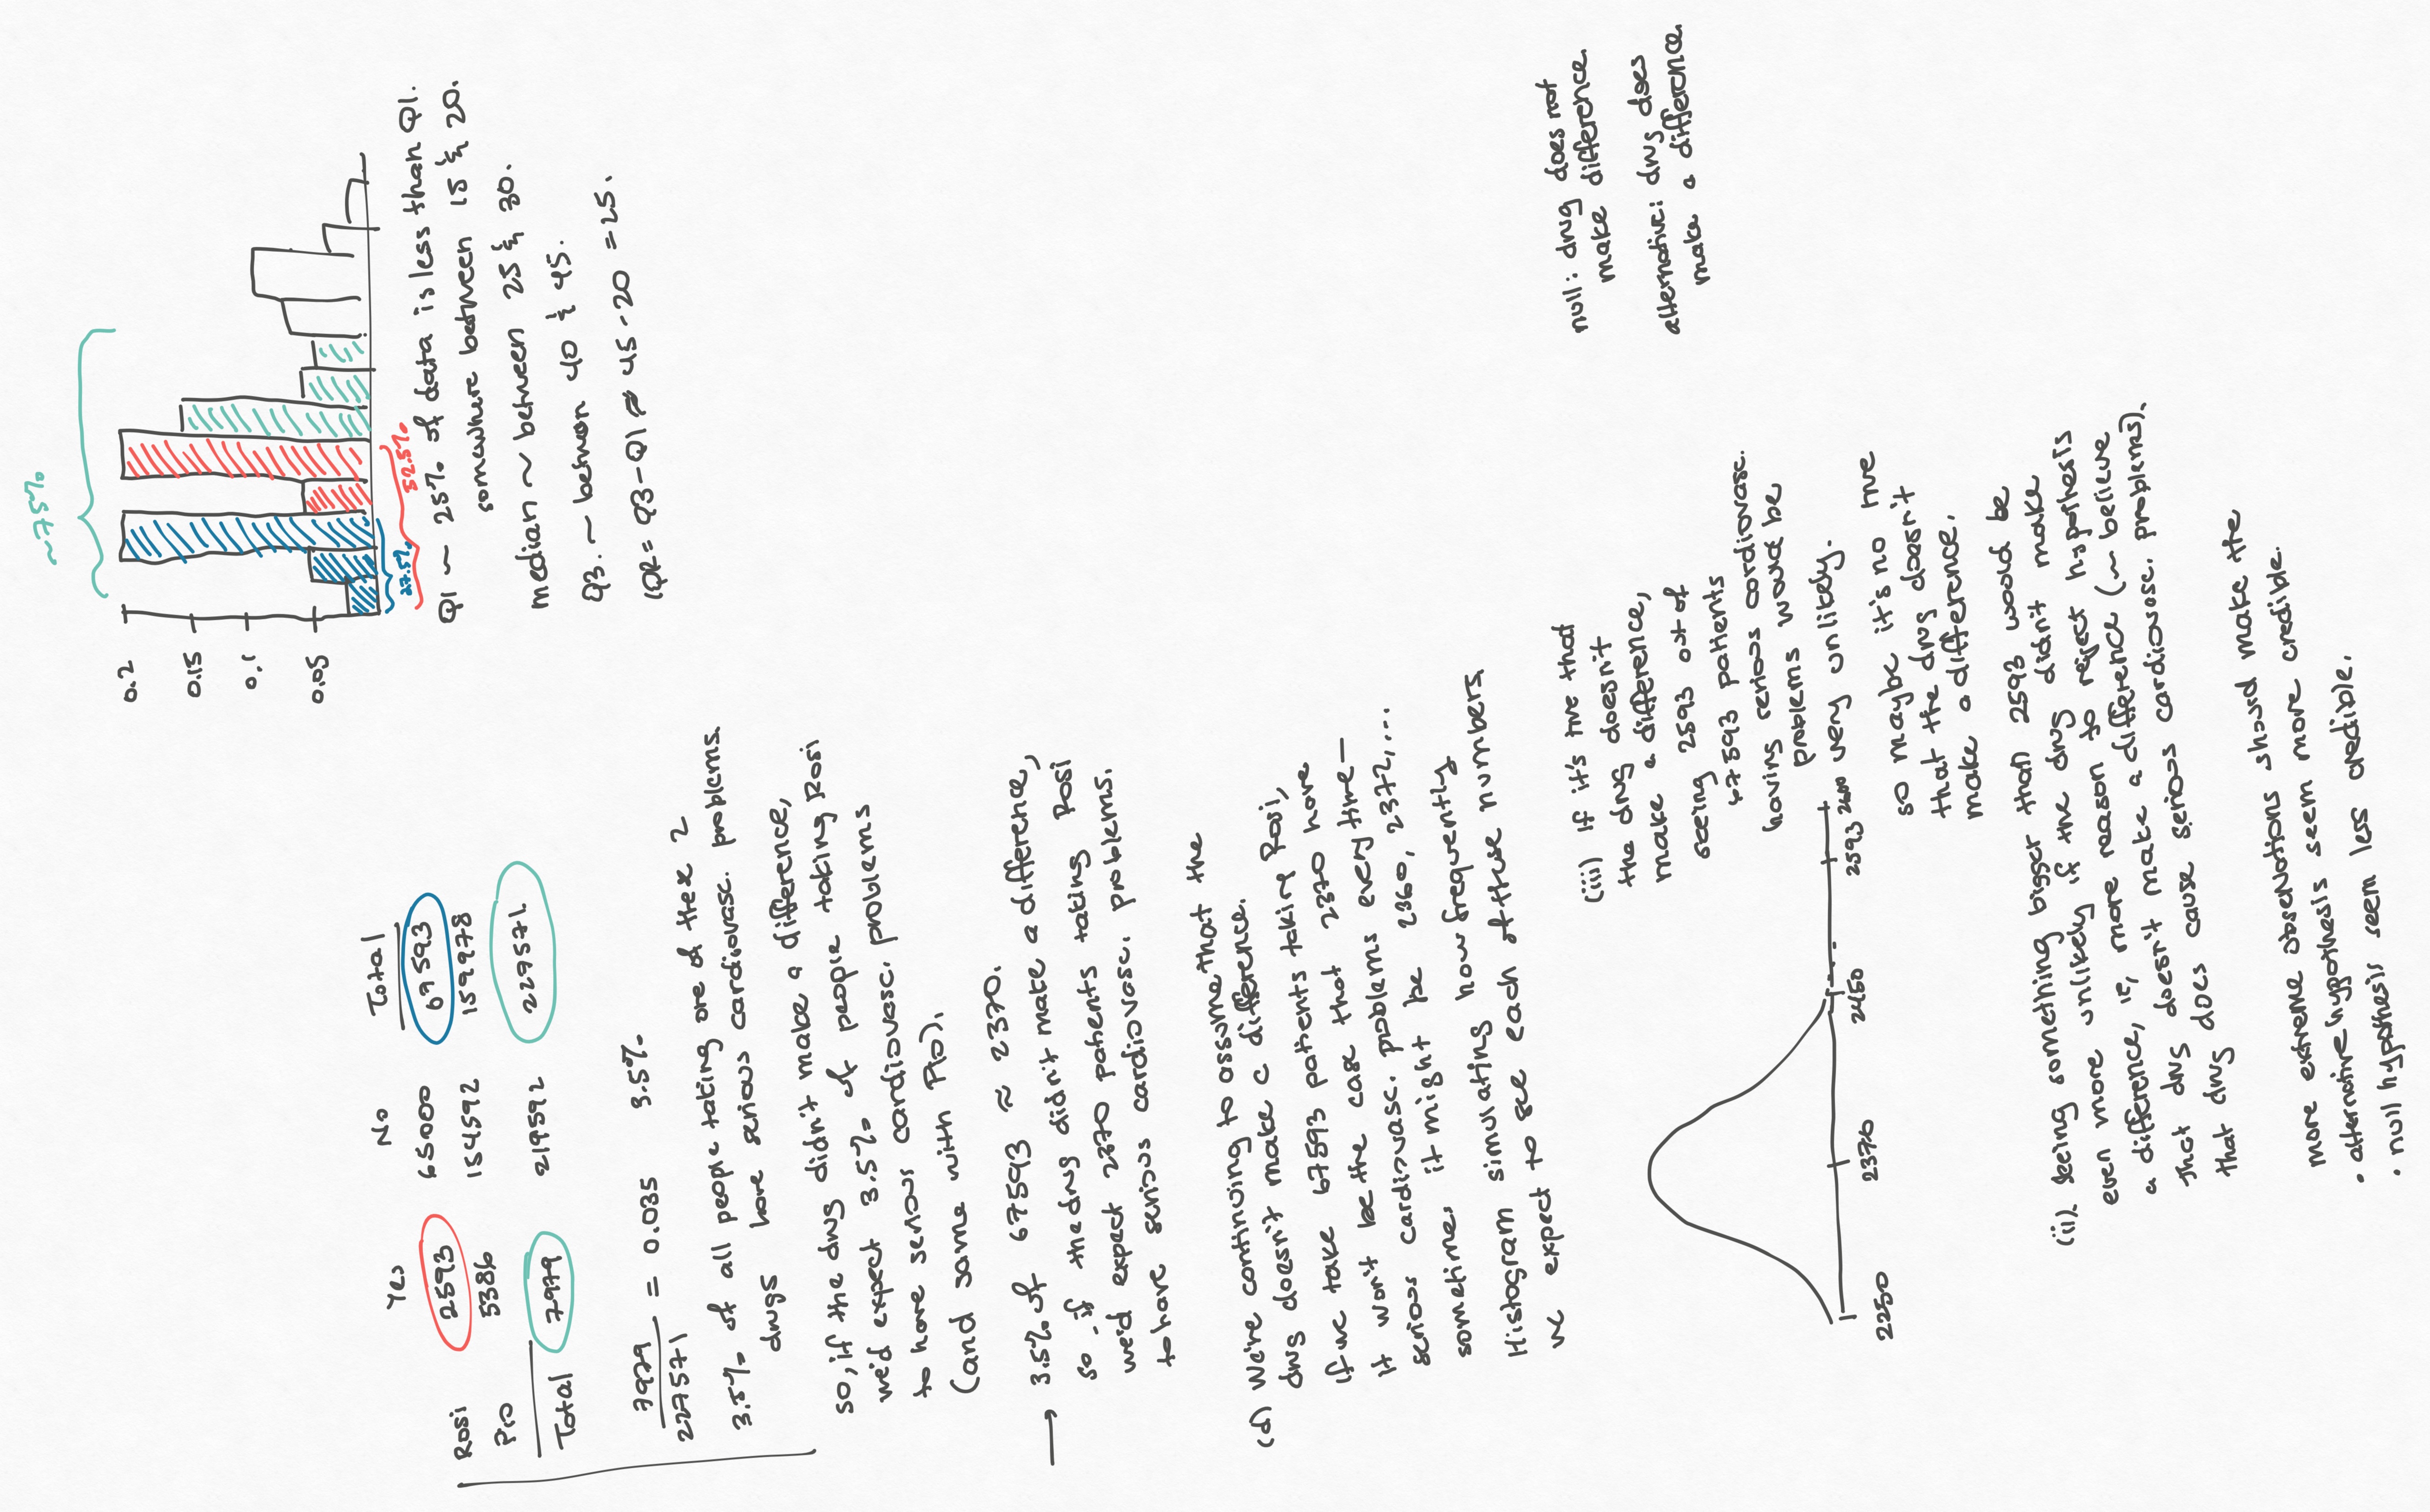 ~75%
0.2
0.15
0.1
0.05
27.5%
52.5%
Q1 ~ 25% of data is less than Q1.
somewhere between 15 & 20.
median ~ between 25 & 30.
Q3. ~ between 40 & 45.
IQR = Q3 - Q1 ≈ 45 - 20 = 25.
Yes No Total
Rosi 2593 65000 67593
Pio 5386 154592 159978
Total 7979 219592 227571
7979
227571
= 0.035 3.5%
3.5% of all people taking one of these 2
drugs have serious cardiovasc. problems.
so, if the drug didn't make a difference,
we'd expect 3.5% of people taking Rosi
to have serious cardiovasc. problems
(and same with Pio).
→ 3.5% of 67593 ≈ 2370.
so if the drug didn't make a difference,
we'd expect 2370 patients taking Rosi
to have serious cardiovasc. problems.
(d) We're continuing to assume that the
drug doesn't make a difference.
If we take 67593 patients taking Rosi,
it won't be the case that 2370 have
serious cardiovasc. problems every time —
sometimes it might be 2360, 2372, ...
Histogram simulating how frequently
we expect to see each of these numbers.
2250 2370 2450 2593 2600
(iii) If it's true that
the drug doesn't
make a difference,
seeing 2593 out of
67593 patients
having serious cardiovasc.
problems would be
very unlikely.
so maybe it's no true
that the drug doesn't
make a difference.
null: drug does not
make difference.
alternative: drug does
make a difference.
(ii). Seeing something bigger than 2593 would be
even more unlikely if the drug didn't make
a difference, ie, more reason to reject hypothesis
that drug doesn't make a difference (~ believe
that drug does cause serious cardiovasc. problems).
more extreme observations should make the
• alternative hypothesis seem more credible.
• null hypothesis seem less credible.